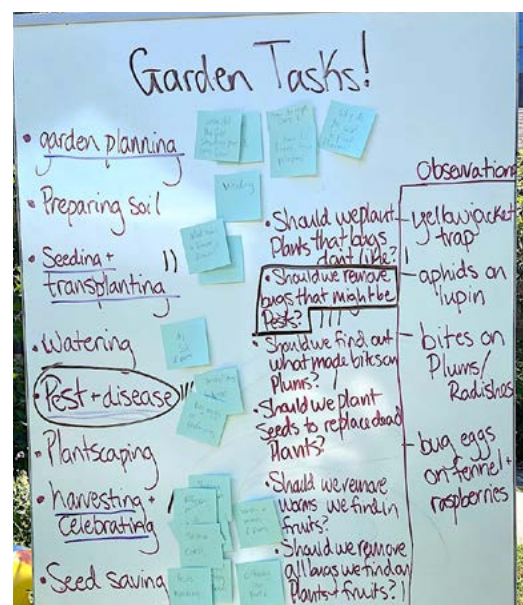 Garden Tasks!
• garden planning
• Preparing Soil
• Seeding +
transplanting
• Watering
• Pest + disease
• Plantscaping
• harvesting +
Celebrating
• Seed saving
Weeding
• Should we plant
Plants that bugs
dont like?
• Should we remove
bugs that might be
Pests?
• Should we find out
what made bites on
Plums?
• Should we plant
Seeds to replace dead
Plants?
• Should we remove
worms we find in
fruits?
• Should we remove
all bugs we find on
Plants + fruits?
Observations
- yellowjacket
trap
- aphids on
lupin
- bites on
Plums/
Radishes
- bug eggs
on fennel +
raspberries